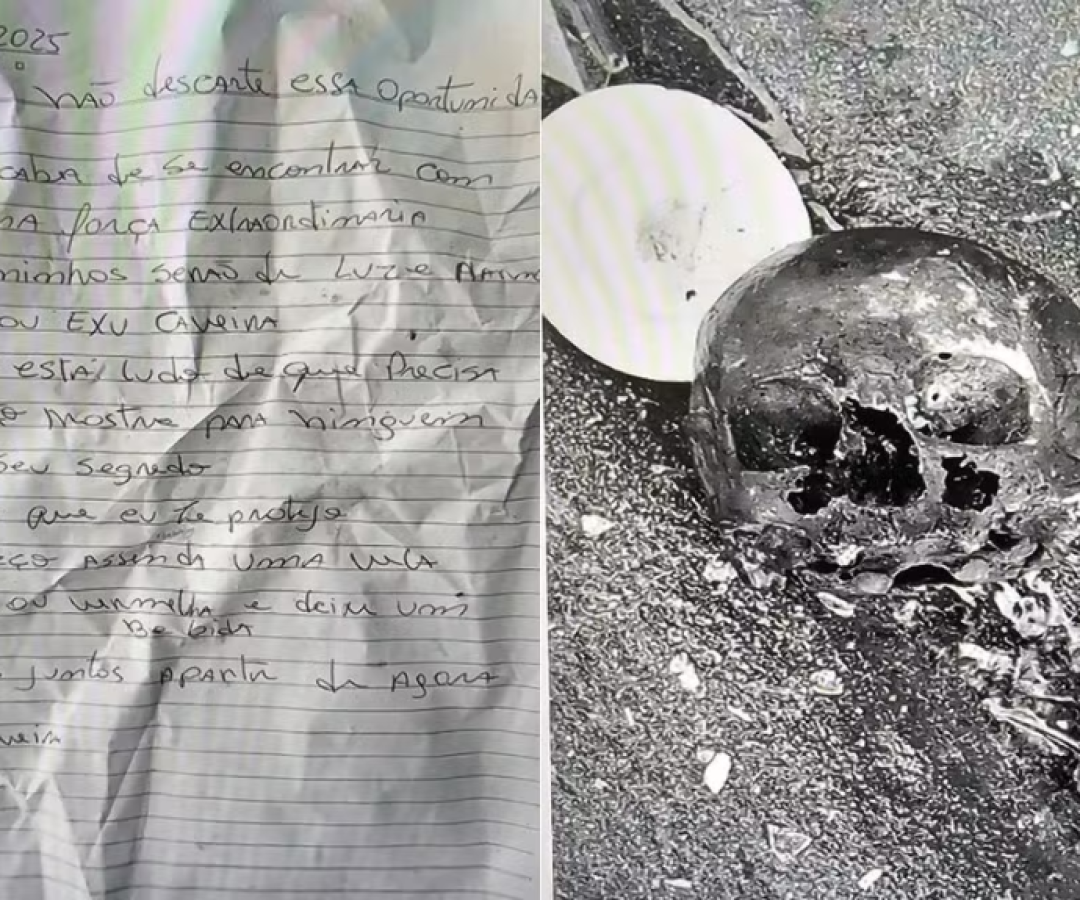 2025
NÃO descarte essa oportunida
caba de se encontrar com
força Extraordinaria
minhos serão de Luz e
ou EXU CAVEIRA
está tudo de que Precisa
mostre para ninguem
seu segredo
que eu te protejo
eço Assenda uma vela
ou vermelha e deixe um
Bebida
juntos apartir de Agora
veira